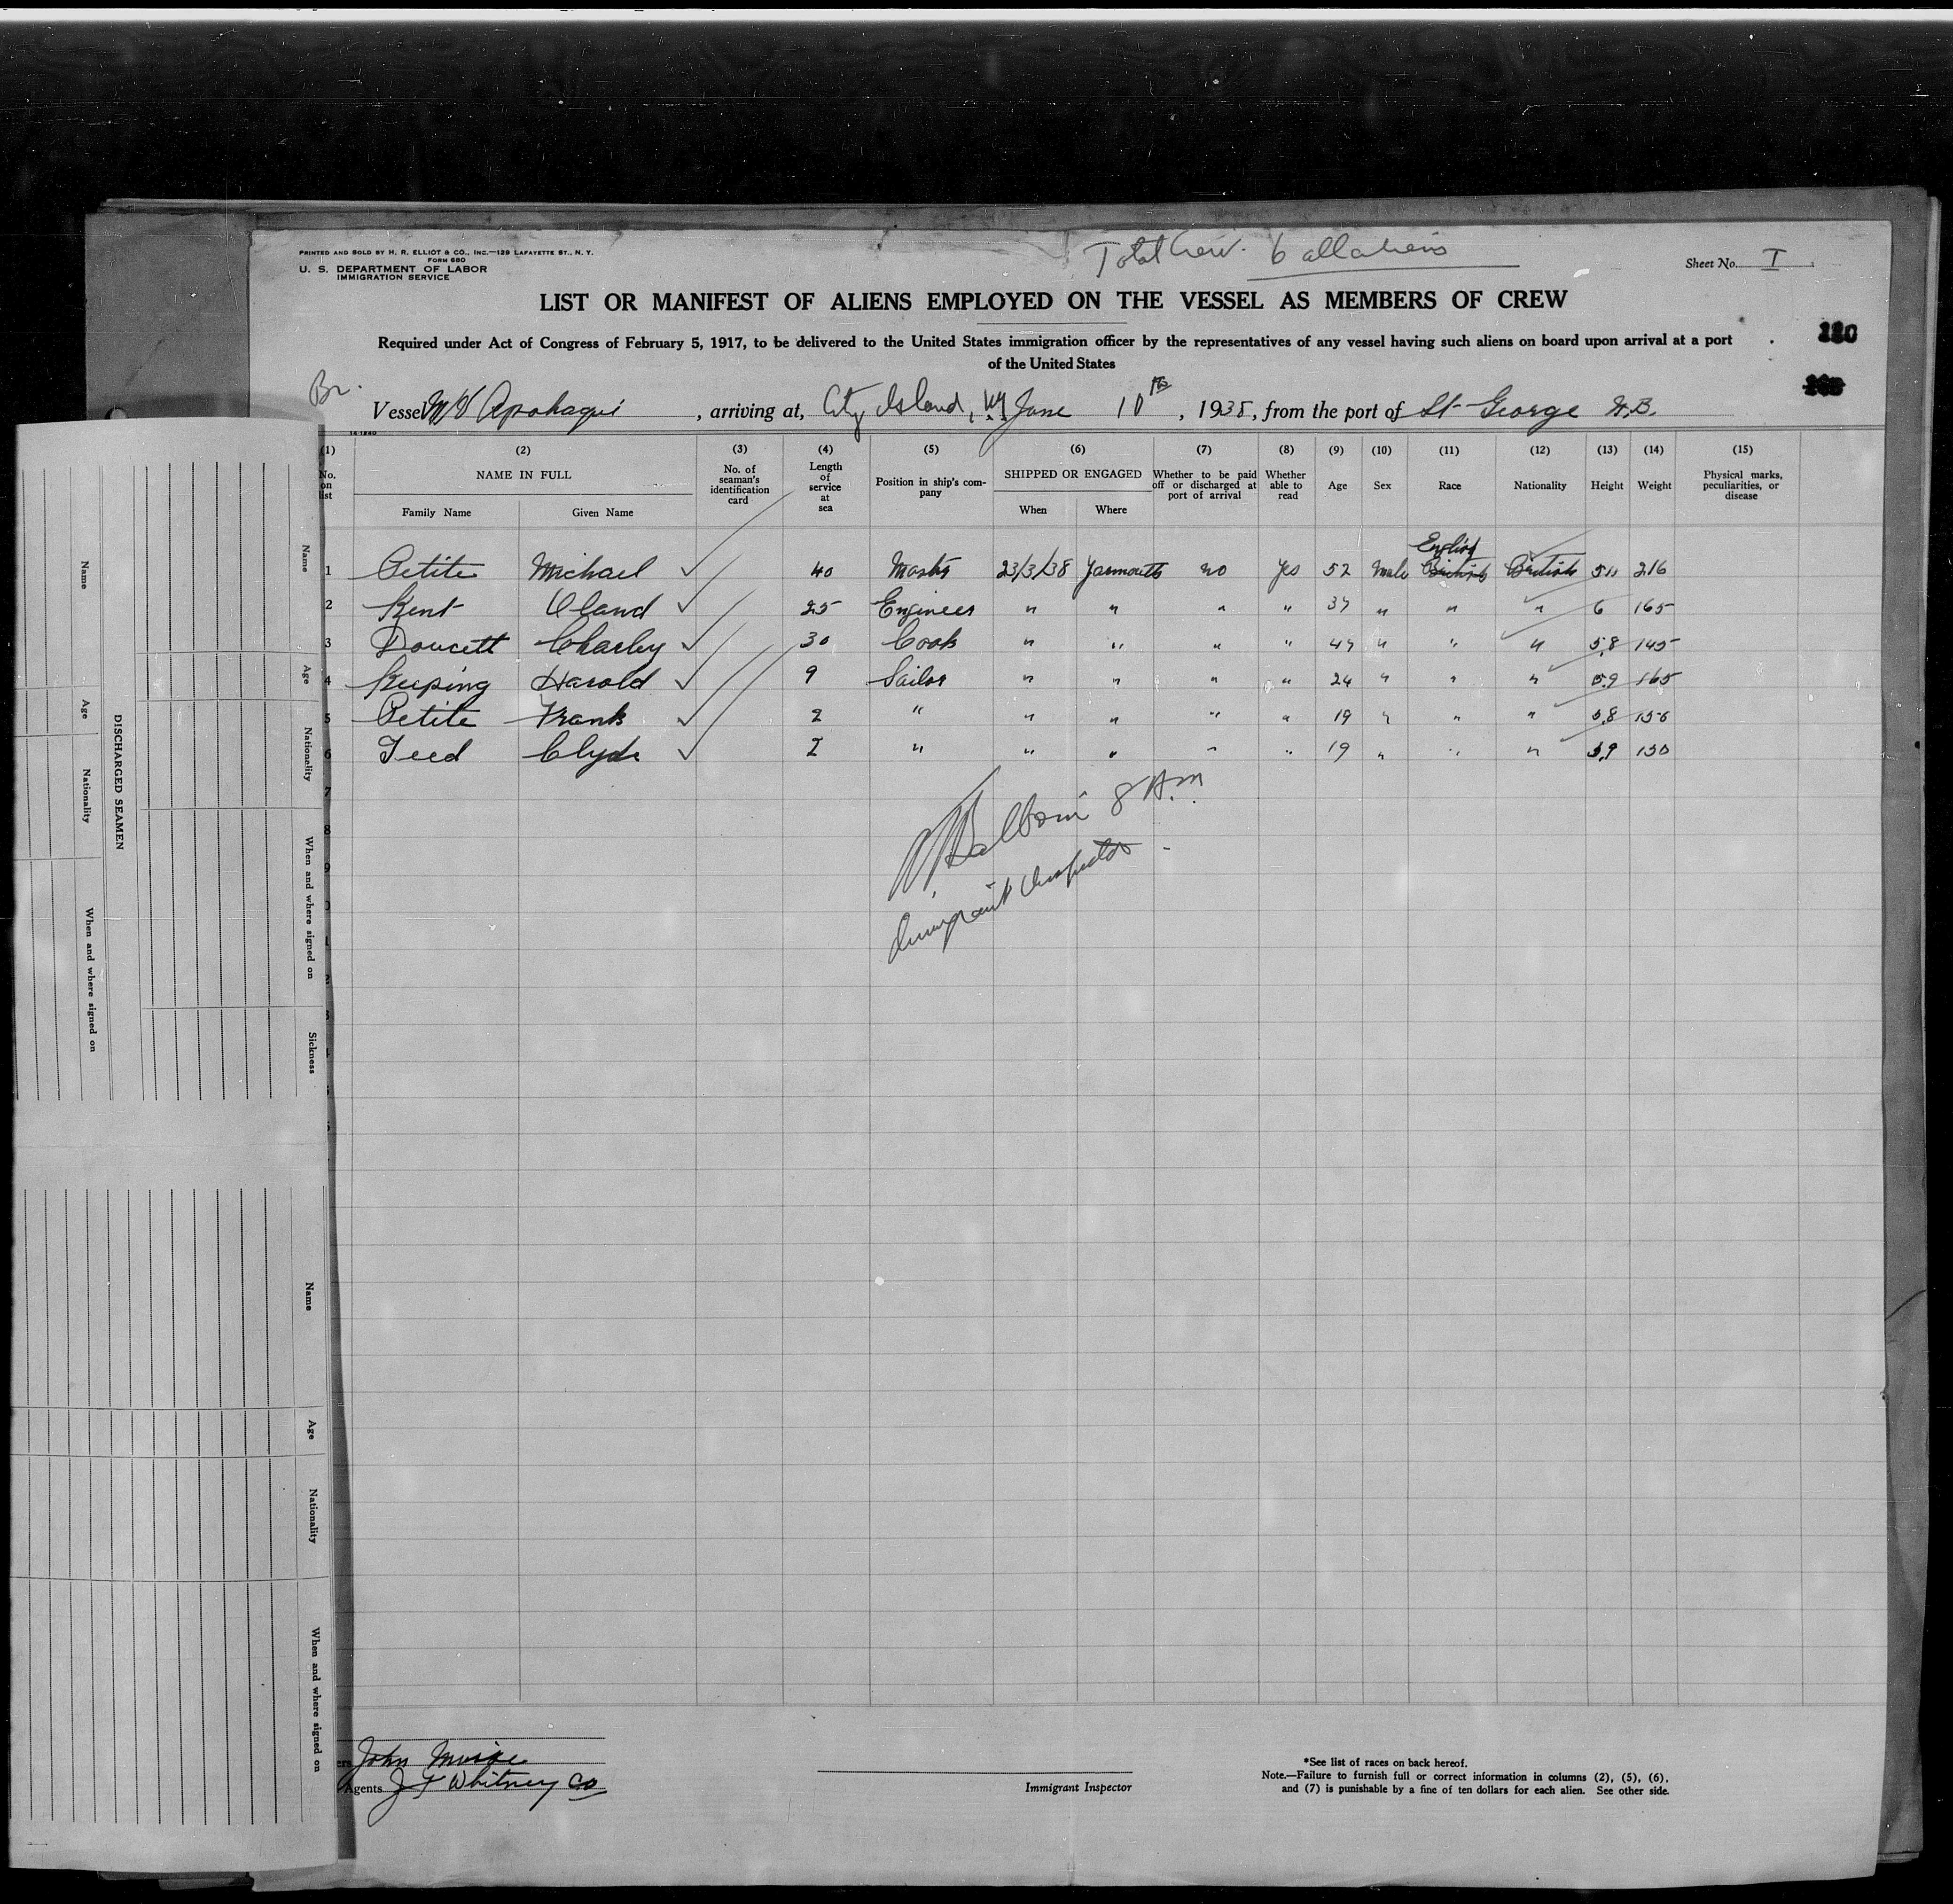 PRINTED AND SOLD BY H. R. ELLIOT & CO., INC.—129 LAFAYETTE ST., N. Y.
FORM 680
U. S. DEPARTMENT OF LABOR
IMMIGRATION SERVICE
Total Crew. 6 all aliens
Sheet No. I
LIST OR MANIFEST OF ALIENS EMPLOYED ON THE VESSEL AS MEMBERS OF CREW
Required under Act of Congress of February 5, 1917, to be delivered to the United States immigration officer by the representatives of any vessel having such aliens on board upon arrival at a port
of the United States
Br.
Vessel MV Apohaqui, arriving at, City Island, NY June 10th, 1938, from the port of St George N.B.
(1) (2) (3) (4) (5) (6) (7) (8) (9) (10) (11) (12) (13) (14) (15)
No. on list NAME IN FULL Family Name Given Name No. of seaman's identification card Length of service at sea Position in ship's company SHIPPED OR ENGAGED When Where Whether to be paid off or discharged at port of arrival Whether able to read Age Sex Race Nationality Height Weight Physical marks, peculiarities, or disease
English
1 Petite Michael ✓ 40 Master 23/3/38 Yarmouth no yes 52 male British British 5 11 216
2 Kent ✓ 25 Engineer " " " " 37 " " " 6 165
3 Doucett Charley ✓ 30 Cook " " " " 47 " " " 5.8 145
4 Keeping Harold ✓ 9 Sailor " " " " 24 " " " 5.9 165
5 Petite Frank ✓ 2 " " " " " 19 " " " 5.8 156
6 Teed Clyde ✓ 2 " " " " " 19 " " " 5.9 130
7
8
9
8 A.M.
Immigrant Inspector
John
Agents J T Whitney Co
Immigrant Inspector
*See list of races on back hereof.
Note.—Failure to furnish full or correct information in columns (2), (5), (6),
and (7) is punishable by a fine of ten dollars for each alien. See other side.
DISCHARGED SEAMEN
Name
Age
Nationality
When and where signed on
Name
Age
Nationality
When and where signed on
Sickness
Name
Age
Nationality
When and where signed on